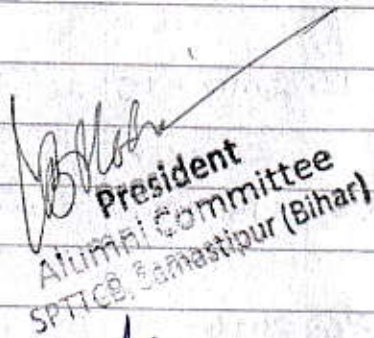 President
Alumni Committee
SPTTCB, Samastipur (Bihar)